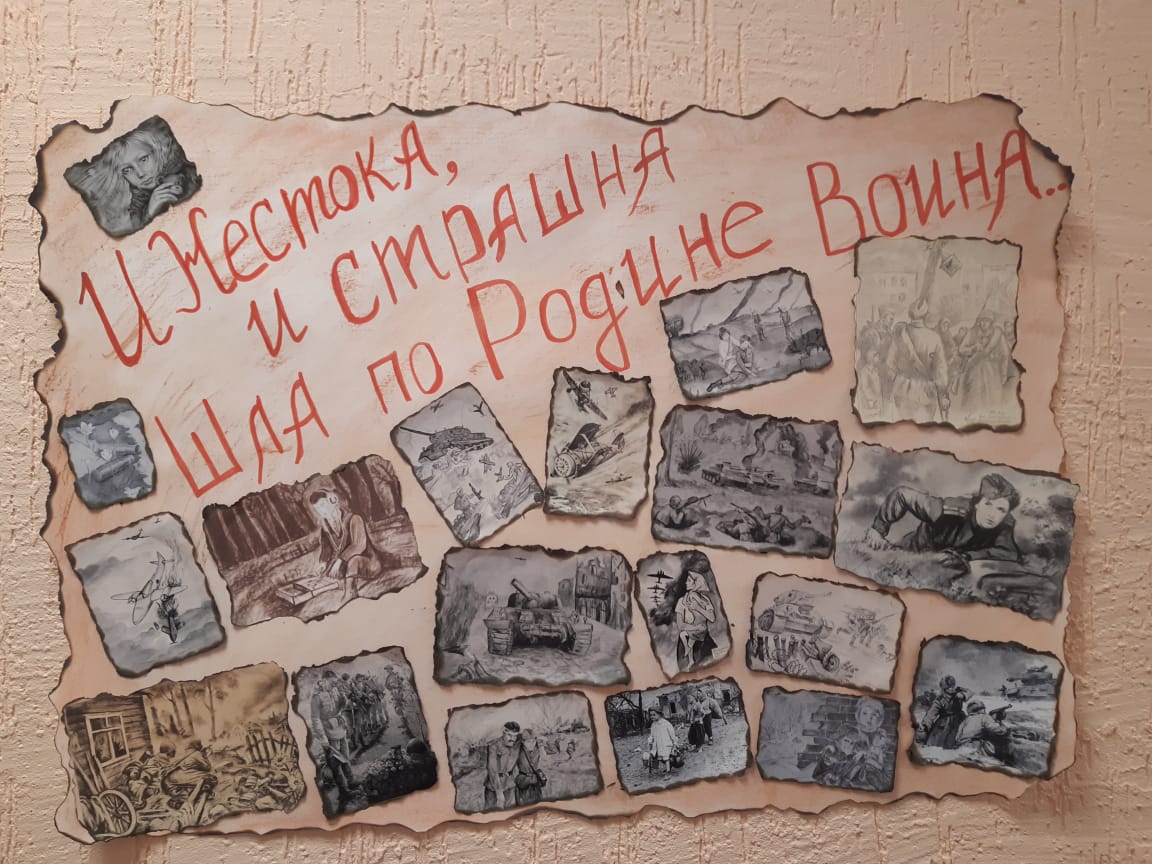 И Жестока,
и страшна
Шла по Родине Война..